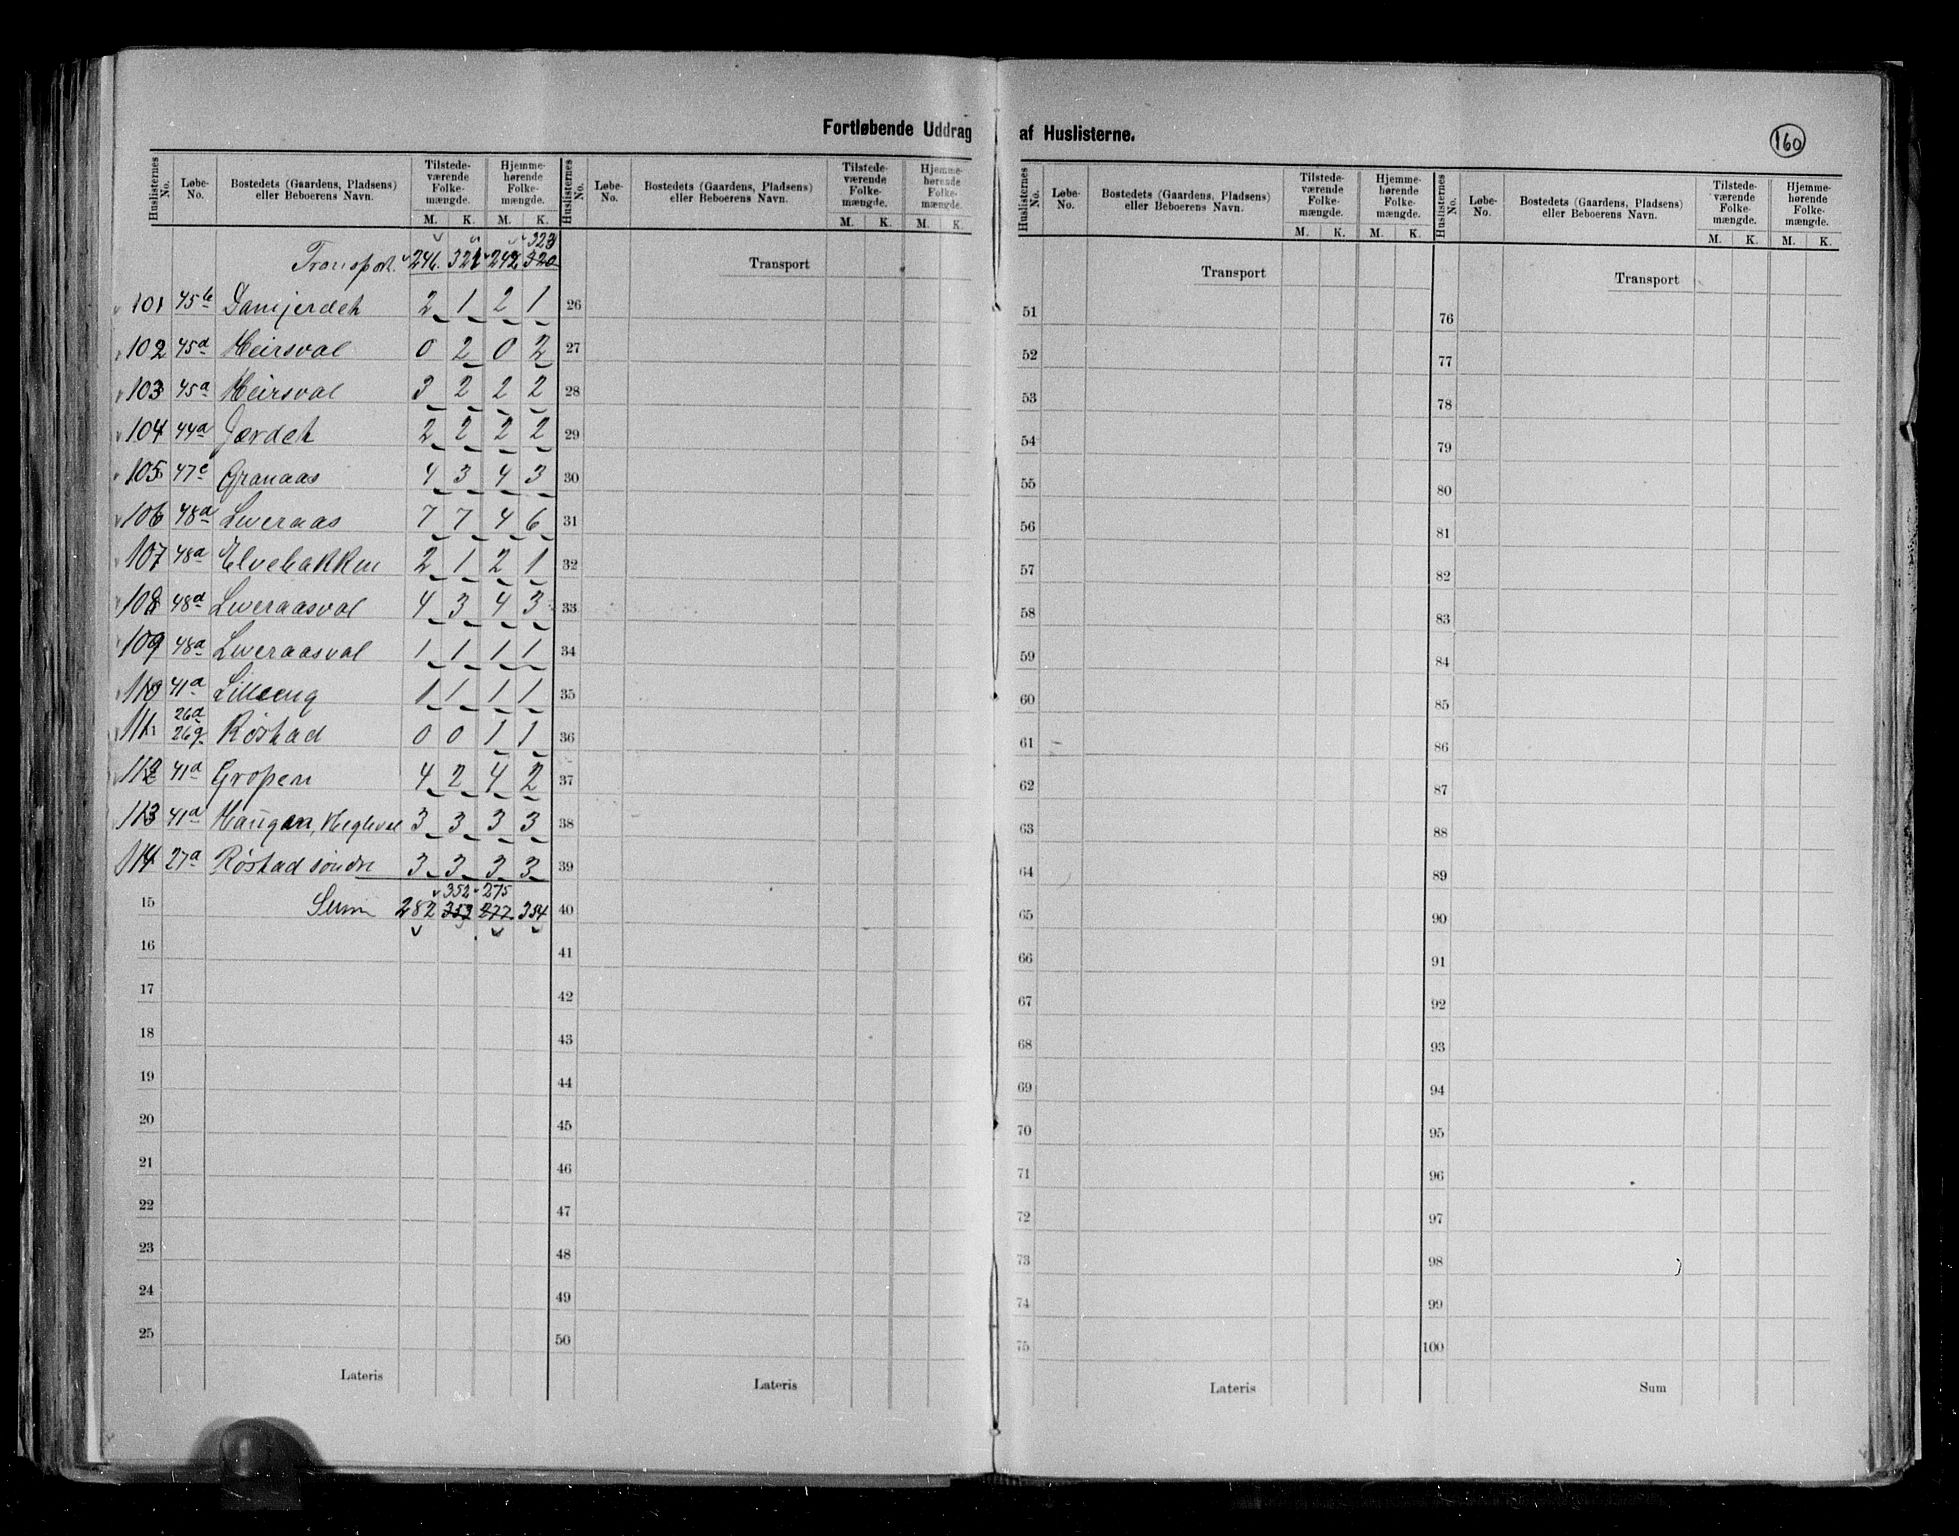 Fortløbende Uddrag af Huslisterne.
160
Huslisternes No. Løbe-No. Bostedets (Gaardens, Pladsens) eller Beboerens Navn. Tilstedeværende Folkemængde. M. K. Hjemmehørende Folkemængde. M. K.
323
Transport. 246. 321 242 320
101 45b 2 1 2 1
102 45d Heirsval 0 2 0 2
103 45a Heirsval 3 2 2 2
104 44a Jordet 2 2 2 2
105 47c Granaas 4 3 4 3
106 48a Leveraas 7 7 4 6
107 48a Elvebakken 2 1 2 1
108 48d Leveraasval 4 3 4 3
109 48a Leveraasval 1 1 1 1
110 41a Lilleeng 1 1 1 1
26d
111 26g Røstad 0 0 1 1
112 41a Gropen 4 2 4 2
113 41a Haugan, 3 3 3 3
114 27a Røstad söndre 3 3 3 3
352 275
15 Sum 282 353 277 354
16
17
18
19
20
21
22
23
24
25
Lateris
Huslisternes No. Løbe-No. Bostedets (Gaardens, Pladsens) eller Beboerens Navn. Tilstedeværende Folkemængde. M. K. Hjemmehørende Folkemængde. M. K.
Transport
26
27
28
29
30
31
32
33
34
35
36
37
38
39
40
41
42
43
44
45
46
47
48
49
50
Lateris
Huslisternes No. Løbe-No. Bostedets (Gaardens, Pladsens) eller Beboerens Navn. Tilstedeværende Folkemængde. M. K. Hjemmehørende Folkemængde. M. K.
Transport
51
52
53
54
55
56
57
58
59
60
61
62
63
64
65
66
67
68
69
70
71
72
73
74
75
Lateris
Huslisternes No. Løbe-No. Bostedets (Gaardens, Pladsens) eller Beboerens Navn. Tilstedeværende Folkemængde. M. K. Hjemmehørende Folkemængde. M. K.
Transport
76
77
78
79
80
81
82
83
84
85
86
87
88
89
90
91
92
93
94
95
96
97
98
99
100
Sum